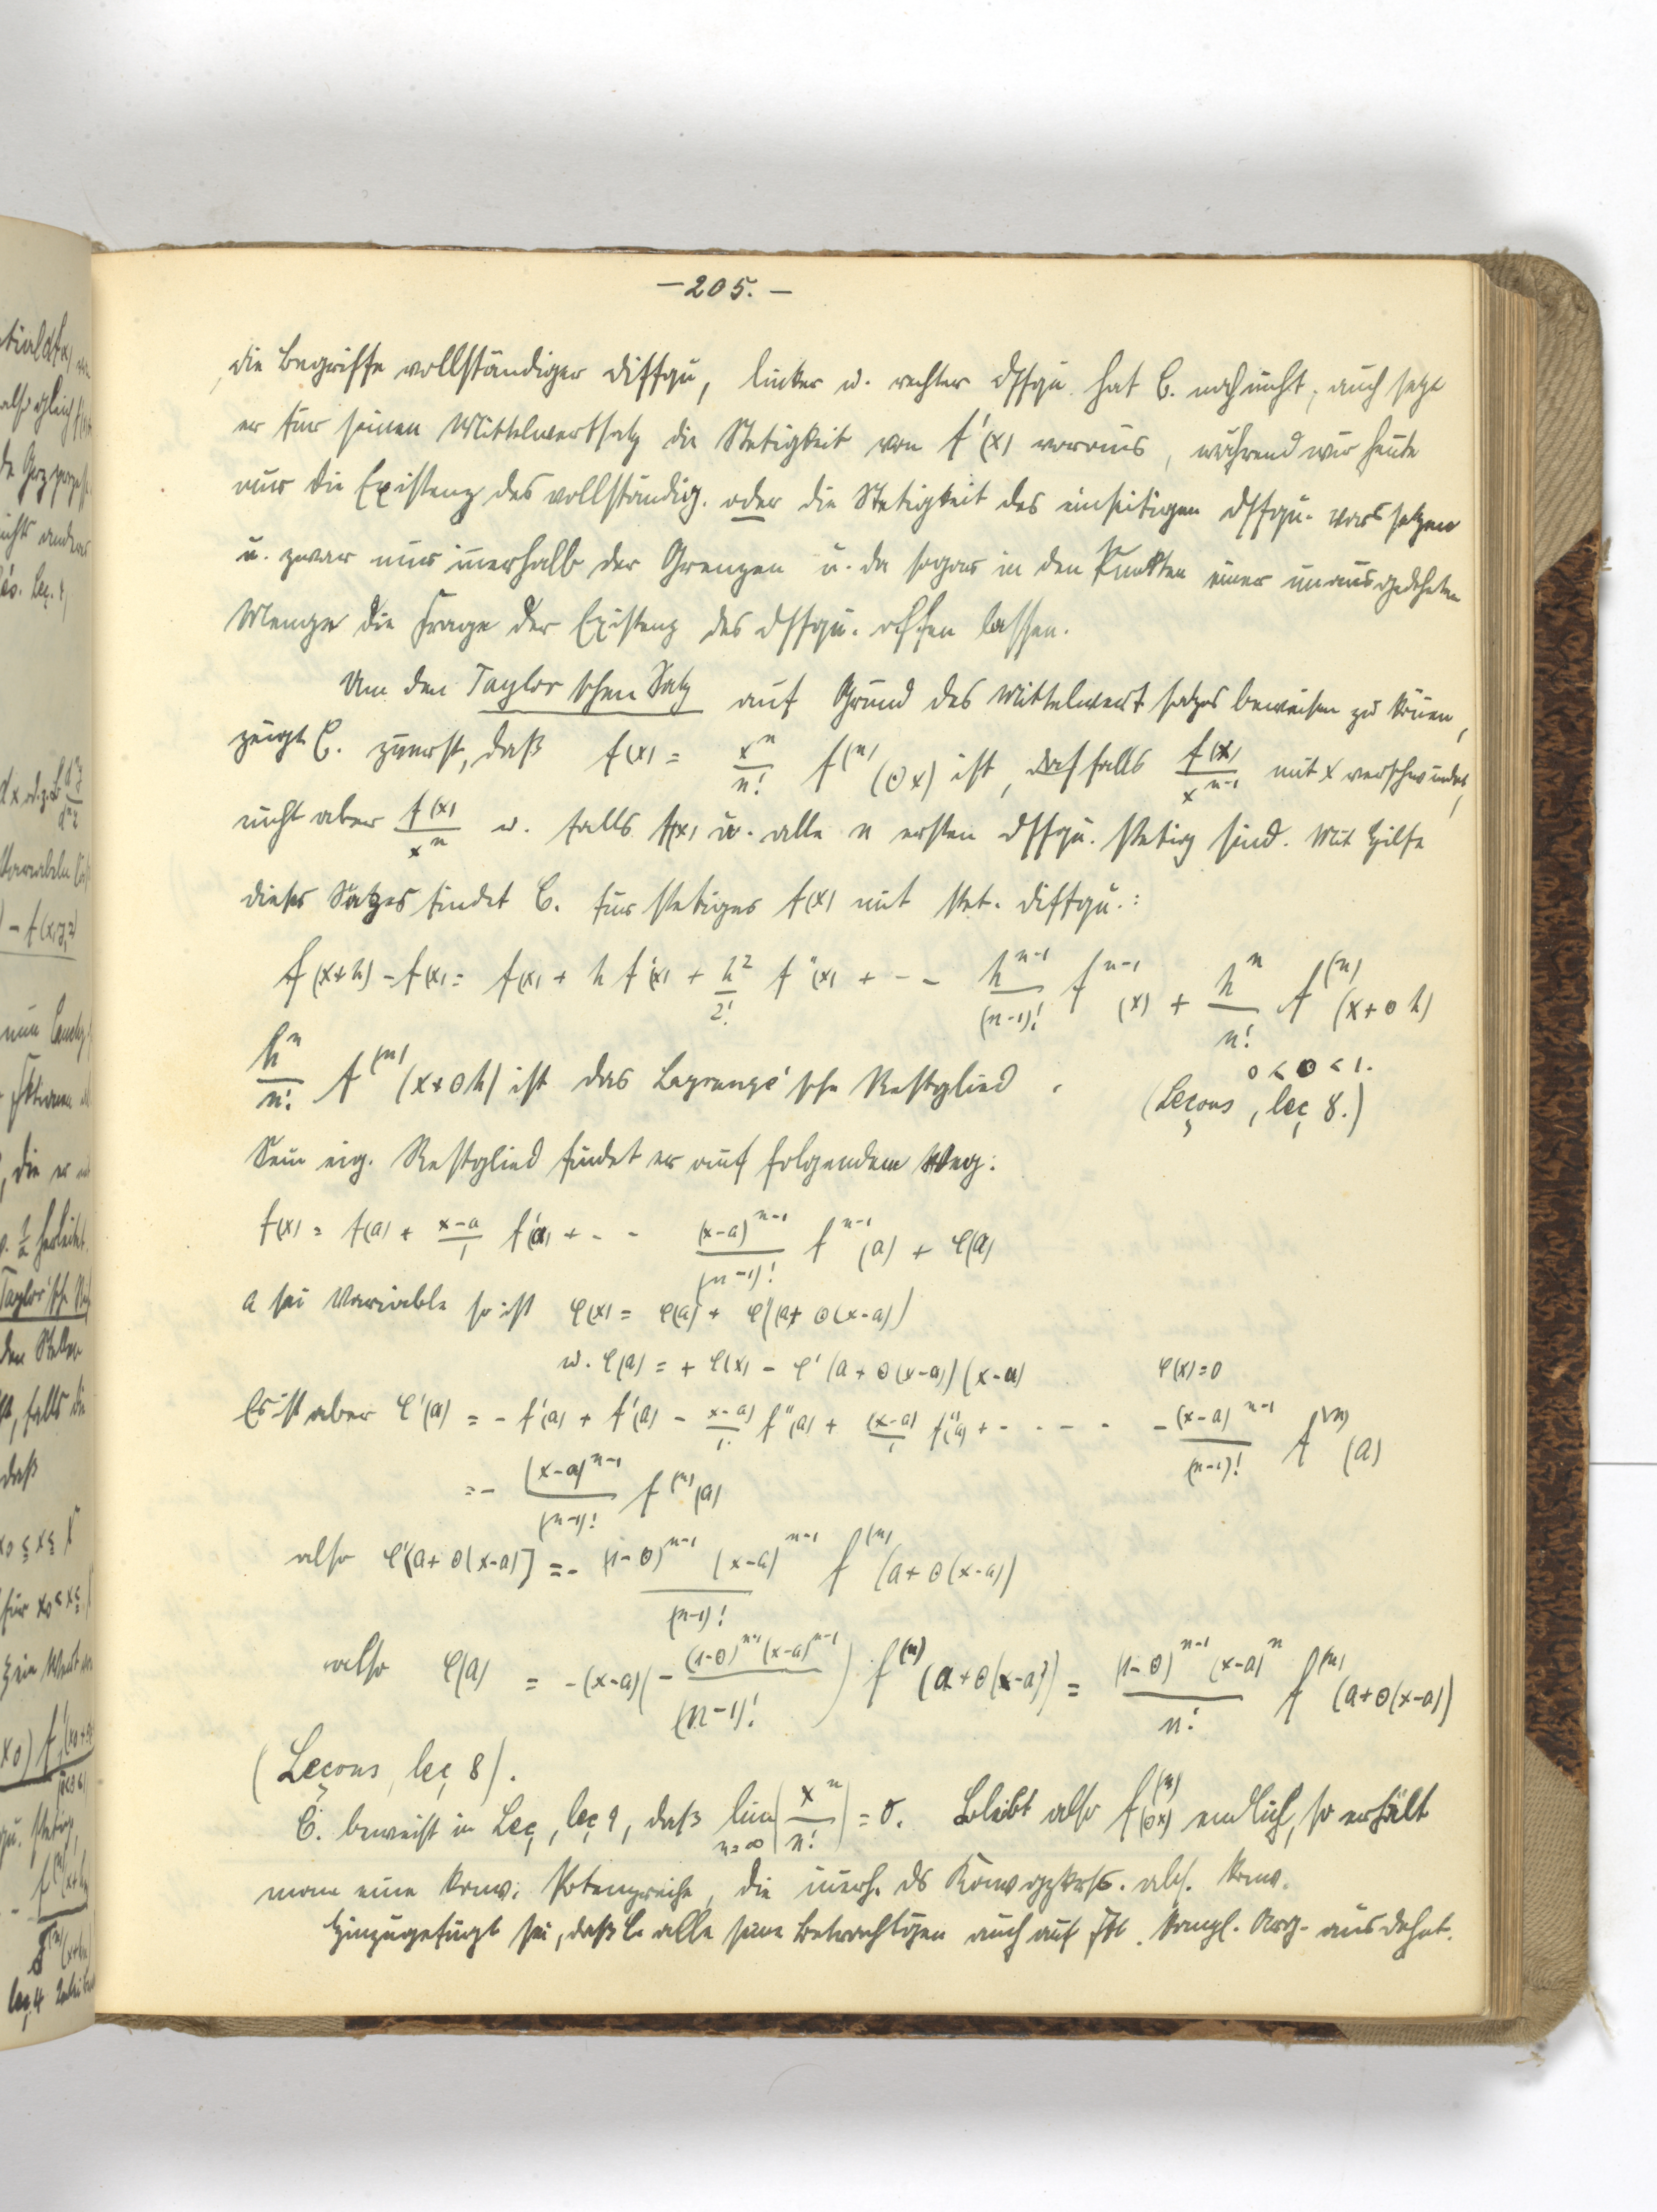 – 205. –
die Begriffe vollständiger Diffqu, linker u. rechter Dffqu. hat C. noch nicht, auch setzt
er für seinen Mittelwertsatz die Stetigkeit von f'(x) voraus, während wir heute
nur die Existenz des vollständig. oder die Stetigkeit des einseitigen Dffqu. voraussetzen
u. zwar nur innerhalb der Grenzen u. da sogar in den Punkten einer unausgedehnten
Menge die Frage der Existenz des Dffqu. offen lassen.
Um den Taylor'schen Satz auf Grund des Mittelwertsatzes beweisen zu können,
zeigt C. zuerst, daß f(x) = x^n/n! f^(n)(Θx) ist, falls f(x)/x^(n-1) mit x verschwindet,
nicht aber f(x)/x^n u. falls f(x) u. alle n ersten Dffqu. stetig sind. Mit Hilfe
dieses Satzes findet C. für stetiges f(x) mit stet. Diffqu.:
f(x+h) - f(x) = f(x) + h f'(x) + h²/2! f''(x) + - - h^(n-1)/(n-1)! f^(n-1)(x) + h^n/n! f^(n)(x+Θh)
0 < Θ < 1.
h^n/n! f^(n)(x+Θh) ist das Lagrange'sche Restglied.
(Leçons, leç 8.)
Sein eig. Restglied findet er auf folgendem Weg:
f(x) = f(a) + (x-a)/1 f'(a) + - - (x-a)^(n-1)/(n-1)! f^(n-1)(a) + φ(a)
a sei Variable so ist φ(x) = φ(a) + φ'(a+Θ(x-a))
u. φ(a) = + φ(x) - φ'(a+Θ(x-a))(x-a) φ(x)=0
Es ist aber φ'(a) = - f'(a) + f'(a) - (x-a)/1! f''(a) + (x-a)/1 f''(a) + - - - - - (x-a)^(n-1)/(n-1)! f^(n)(a)
= - (x-a)^(n-1)/(n-1)! f^(n)(a)
also φ'[a+Θ(x-a)] = - (1-Θ)^(n-1) (x-a)^(n-1)/(n-1)! f^(n)(a+Θ(x-a))
also φ(a) = -(x-a)(- (1-Θ)^(n-1)(x-a)^(n-1)/(n-1)!) f^(n)(a+Θ(x-a)) = (1-Θ)^(n-1)(x-a)^n/n! f^(n)(a+Θ(x-a))
(Leçons, leç 8).
C. beweist in Leç, leç 9, daß lim n=∞ (x^n/n!) = 0. Bleibt also f^(n)(Θx) endlich, so erhält
man eine konv. Potenzreihe, die innerh. ds abs. konv.
Hinzugefügt sei, daß C. alle seine auch auf kompl. Arg. ausdehnt.